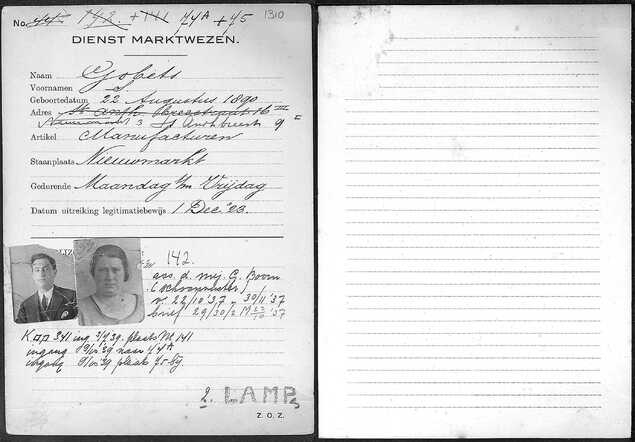 No. 44 142. + 141 74A + 75 1310
DIENST MARKTWEZEN.
Naam Gobets
Voornamen S.
Geboortedatum 22 Augustus 1890
Adres St. Anth. Breestraat 16 III
Nieuwmarkt 3 St Anthbreest 9 II
Artikel Manufacturen
Staanplaats Nieuwmarkt
Gedurende Maandag t/m Vrijdag
Datum uitreiking legitimatiebewijs 1 Dec. '23.
142.
ass. d. mej. G. Boom
(schoonzuster)
v. 22/10 '37 - 30/11 '37
brief 29/30/2 M 22/10 '37
341 ing. 3/7 39. plaats M 141
ingang '39 naar 74A
ingang '39 plaats 75 bij.
2. LAMP
Z. O. Z.